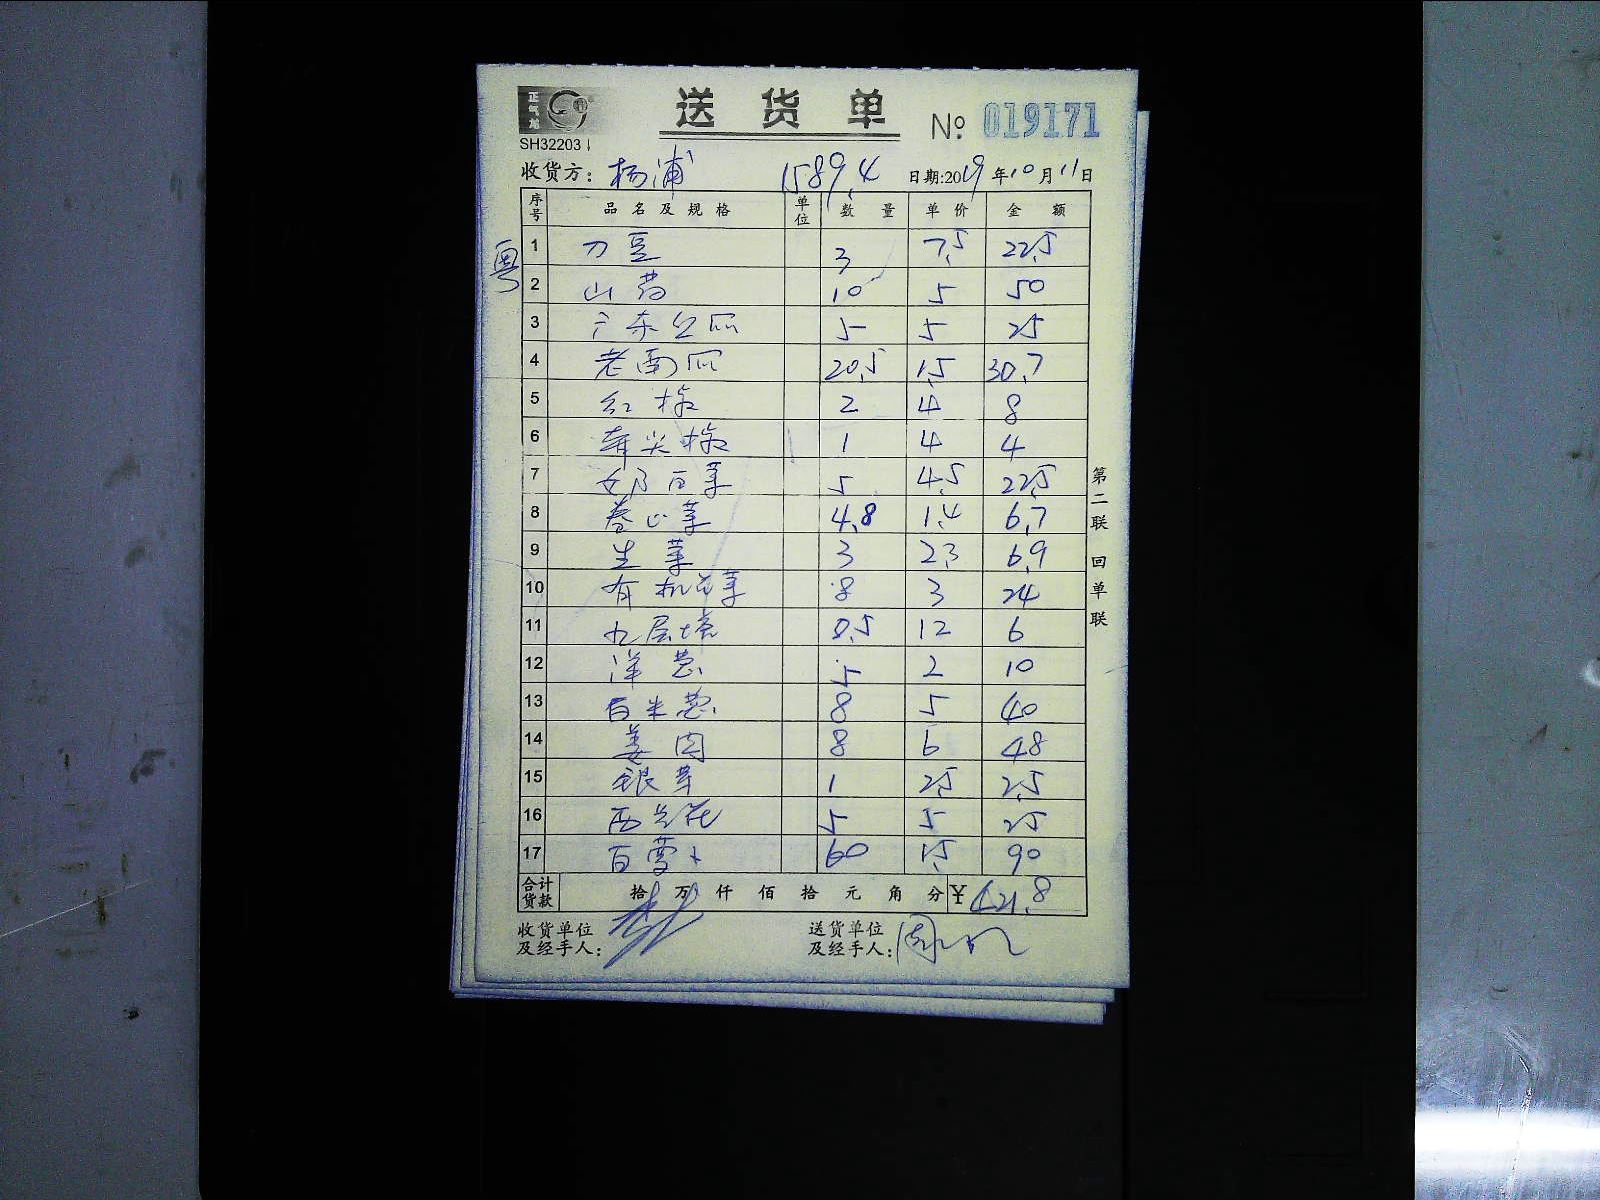 送货单 № 019171
SH32203
收货方: 杨浦 1589.4 日期:2019年10月11日
序号 品名及规格 单位 数量 单价 金额
粤
1 刀豆 3 7.5 22.5
2 山药 10 5 50
3 广东丝瓜 5 5 25
4 老南瓜 20.5 1.5 30.7
5 红椒 2 4 8
6 尖椒 1 4 4
7 奶白菜 5 4.5 22.5
8 卷心菜 4.8 1.4 6.7
9 生菜 3 2.3 6.9
10 有机花菜 8 3 24
11 九层塔 0.5 12 6
12 洋葱 5 2 10
13 白米葱 8 5 40
14 姜肉 8 6 48
15 银芽 1 2.5 2.5
16 西兰花 5 5 25
17 白萝卜 60 1.5 90
合计货款 拾 万 仟 佰 拾 元 角 分 ¥ 421.8
收货单位及经手人:
送货单位及经手人:
第二联 回单联